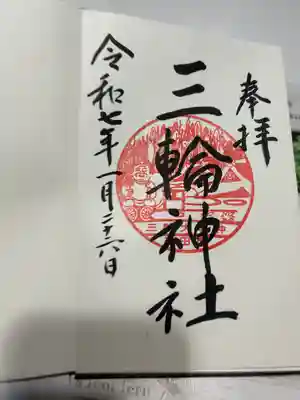 奉拝
三輪神社
令和七年一月二十六日